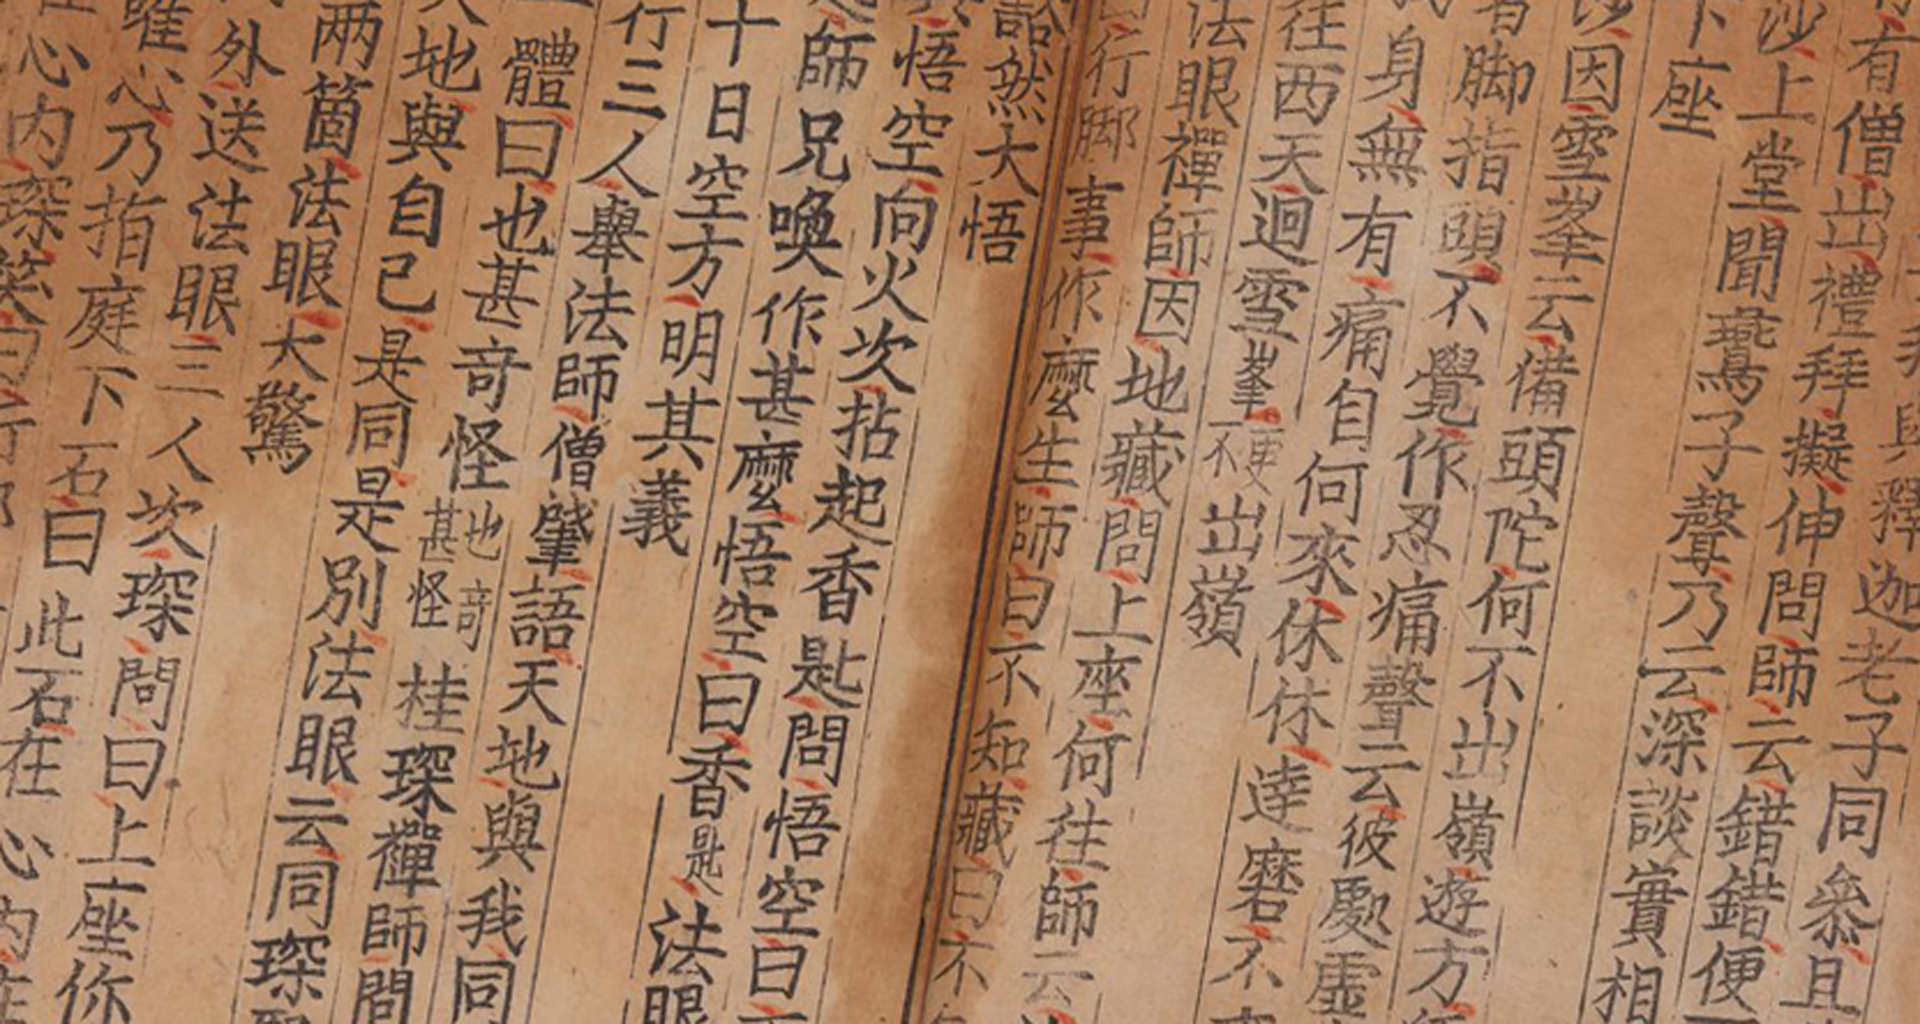 與釋迦老子同叅且
有僧出禮拜擬伸問師云錯錯便
沙上堂聞鷰子聲乃云深談實相
下座
沙因雪峯云備頭陀何不出嶺遊方
者脚指頭不覺作忍痛聲云彼處虛
身無有痛自何來休休達磨不
往西天迴雪峯更不出嶺
法眼禪師因地藏問上座何往師云
行脚事作麽生師曰不知藏曰不
豁然大悟
悟空向火次拈起香匙問悟空曰
師兄喚作甚麽悟空曰香匙法眼
十日空方明其義
行三人舉法師僧肇語天地與我同
體曰也甚竒怪也竒甚怪桂琛禪師問
大地與自己是同是別法眼云同琛
兩箇法眼大驚
外送法眼三人次琛問曰上座你
唯心乃指庭下石曰此石在心内在
心内琛笑曰行